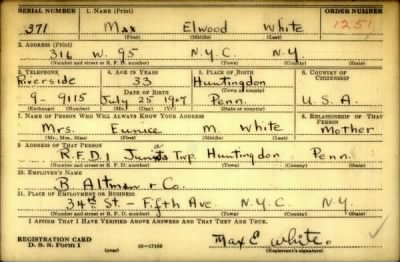 SERIAL NUMBER 1. NAME (Print) ORDER NUMBER
371 Max Elwood White 1251
(First) (Middle) (Last)
2. ADDRESS (Print)
316 W. 95 N.Y.C. N.Y.
(Number and street or R. F. D. number) (Town) (County) (State)
3. TELEPHONE 4. AGE IN YEARS 5. PLACE OF BIRTH 6. COUNTRY OF CITIZENSHIP
Riverside 33 Huntingdon
DATE OF BIRTH (Town or county)
9-9115 July 25 1907 Penn. U.S.A.
(Exchange) (Number) (Mo.) (Day) (Yr.) (State or country)
7. NAME OF PERSON WHO WILL ALWAYS KNOW YOUR ADDRESS 8. RELATIONSHIP OF THAT PERSON
Mrs. Eunice M. White Mother
(Mr., Mrs., Miss) (First) (Middle) (Last)
9. ADDRESS OF THAT PERSON
R.F.D.1 Twp. Huntingdon Penn.
(Number and street or R. F. D. number) (Town) (County) (State)
10. EMPLOYER'S NAME
B. Altman & Co.
11. PLACE OF EMPLOYMENT OR BUSINESS
34th St. - Fifth Ave. N.Y.C. N.Y.
(Number and street or R. F. D. number) (Town) (County) (State)
I AFFIRM THAT I HAVE VERIFIED ABOVE ANSWERS AND THAT THEY ARE TRUE.
REGISTRATION CARD
D. S. S. FORM 1 16-17105 Max E. White.
(Registrant's signature)